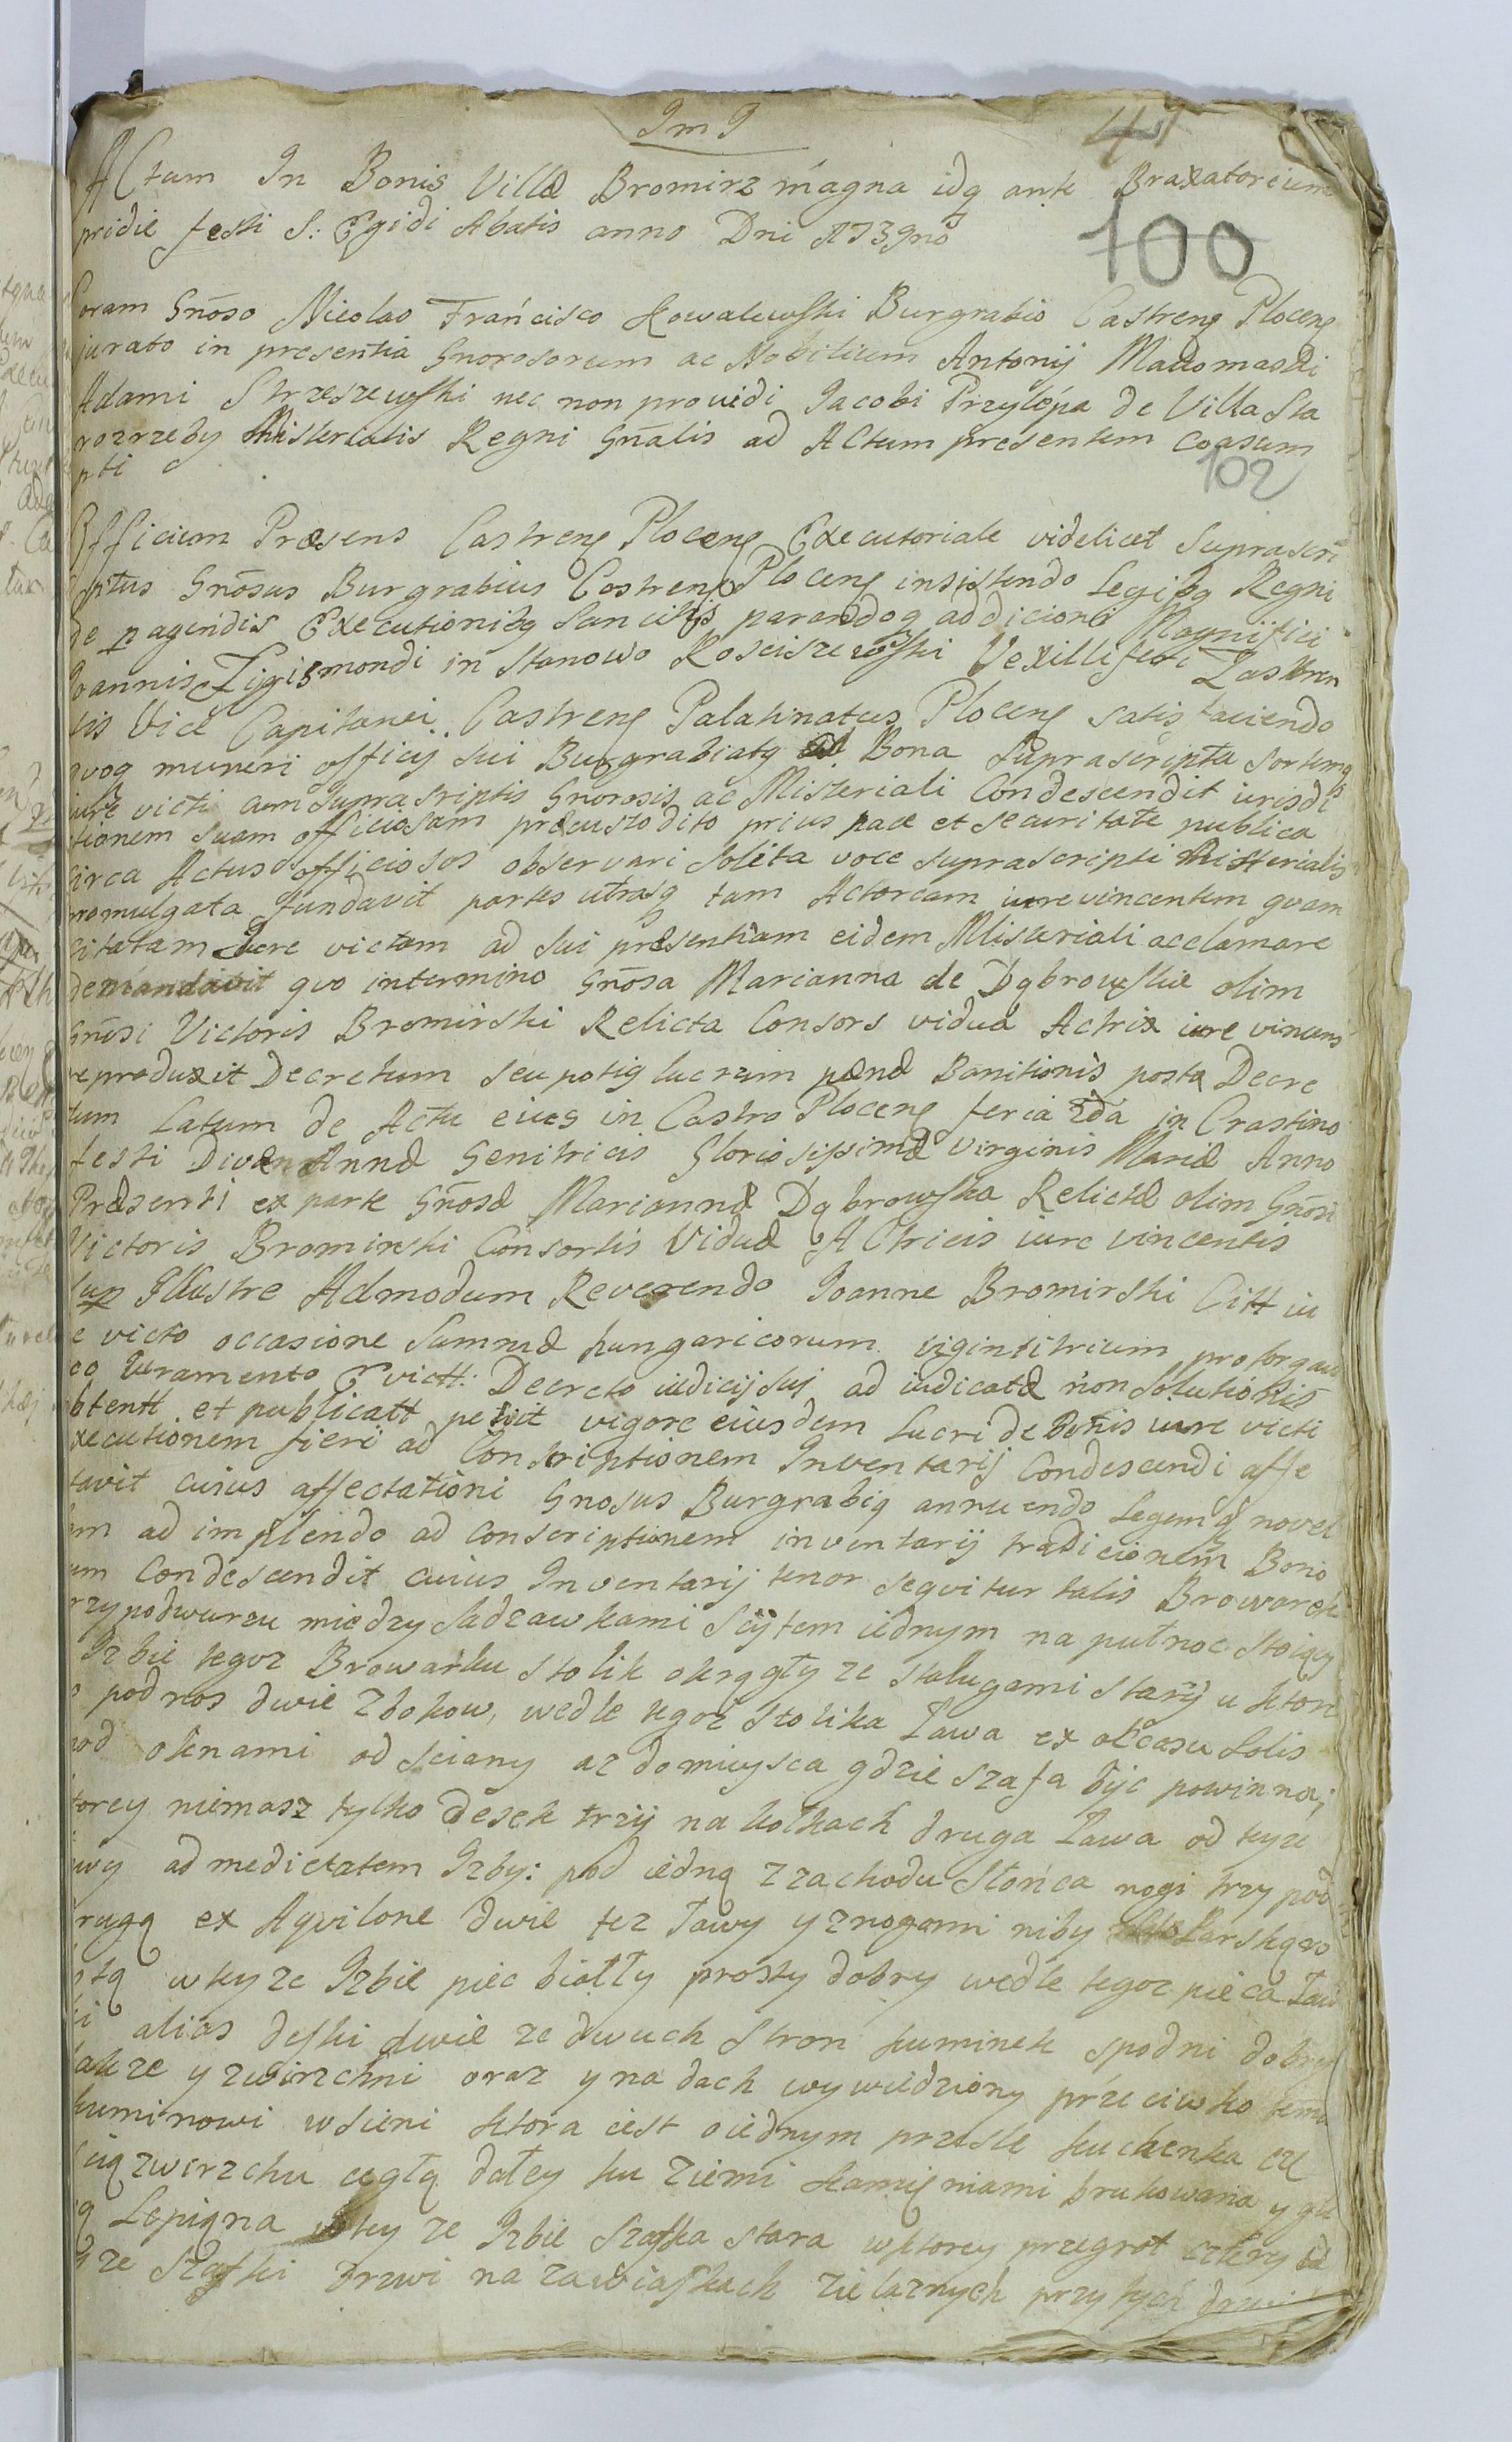 Im J
41
ACtum In Bonis Villæ Bromirz magna idq ante Braxatorium
pridie festi S: Egidi Abatis anno Dni 1739no
100
Coram Gnōso Nicolao Francisco Kowalewski Burgrabio Castrenę Plocenę
jurato in presentia Gnorosorum ac Nobilium Antonij Makomaski
Adami Strzeszewski nec non providi Jacobi Przylépa de Villa Sta
rozrzeby Misterialis Regni Gnālis ad ACtum presentem coasum
pti
102
Officium Præsens Castrenę Plocenę Executoriale videlicet Suprascri
ptus Gnōsus Burgrabius Castrenę Plocenę insistendo Legibq Regni
de pagendis Executionibq Sancitis parendoq addicioni Magnifici
Joannis Zigismondi in Stanowo Kosciszewski Vexilliferi Zaskren
sis Vice Capitanei Castrenę Palatinatus Plocenę satis faciendo
quoq muneri officij sui Burgrabiatq ad Bona Suprascripta sortemq
iure victi cum suprascriptis Gnorosis ac Misteriali Condescendit iurisdi
tionem suam officiosam præcustodito prius pace et securitate publica
circa Actus officiosos observari solita voce suprascripti Misterialis
promulgata fundavit partes utrasq tam Actoream iure vincentem quam
citatam iure victam ad sui præsentiam eidem Misteriali acclamare
demandavit quo intermino Gnōsa Marianna de Dąbrowskie olim
Gnōsi Victoris Bromirski Relicta Consors vidua Actrix iure vincens
reproduxit Decretum seu potiq lucrum pænæ Banitionis post Decre
tum Latum de Actu eius in Castro Plocenę feria 2da in Crastino
festi Divæ Annæ Genitricis Gloriosissimæ Virginis Mariæ Anno
Præsenti ex parte Gnōsæ Mariannæ Dąbrowska Relictæ olim Gnōsi
Victoris Bromirski Consortis Viduæ ACtricis iure vincentis
sup Illustre Admodum Reverendo Joanne Bromirski Citt iu
e victo occasione Summæ hungaricorum viginti trium
eo Iuramento Evictt: Decreto iudicij sui ad iudicatæ non solutionis
btentt et publicatt petiit vigore eiusdem Lucri de Bonis iure victi
xecutionem fieri ad Conscriptionem Inventarij Condescendi affe
tavit cuius affectationi Gnosus Burgrabiq annuendo Legumq novel
am ad implendo ad conscriptionem inventarij tradicionem Bono
um Condescendit cuius Inventarij tenor sequitur talis Browarek
rzypodwurzu miedzy Sadzawkami Scÿtem iednym na pułnoc Stoiący
Izbie tegoz Browarku stolik okrągły ze stalugami starÿ u ktore
o podnos dwie z bokow, wedle tegoz Stolika Ława ex occasu Solis
pod oknami od sciany az do mieysca gdzie szafa bÿc powinna;
torey niemasz tylko Desek trzÿ na kołkach druga Ława od teyze
awy ad medietatem Izby: pod iedną z zachodu Słońca nogi trzy pod
rugą ex Aqvilone dwie tez Ławy y znogami niby
otą wteyze Izbie piec białły prosty dobry wedle tegoz pieca Ław
ki alias deski dwie ze dwuch stron kuminek spodni dobry
akze y zwirzchni oraz y na dach wywiedziony przeciwko temu
kuminowi wsieni ktora iest oiednym przesle kuchenka cze
cią zwerzchu cegłą daley ku ziemi kamięniami brukowana y gli
ą Lepiąna wtey ze Izbie szafka stara wktorey przegrot cztery u
y ze Szafki Drzwi na zawiaskach zielaznych przy tych drzwi